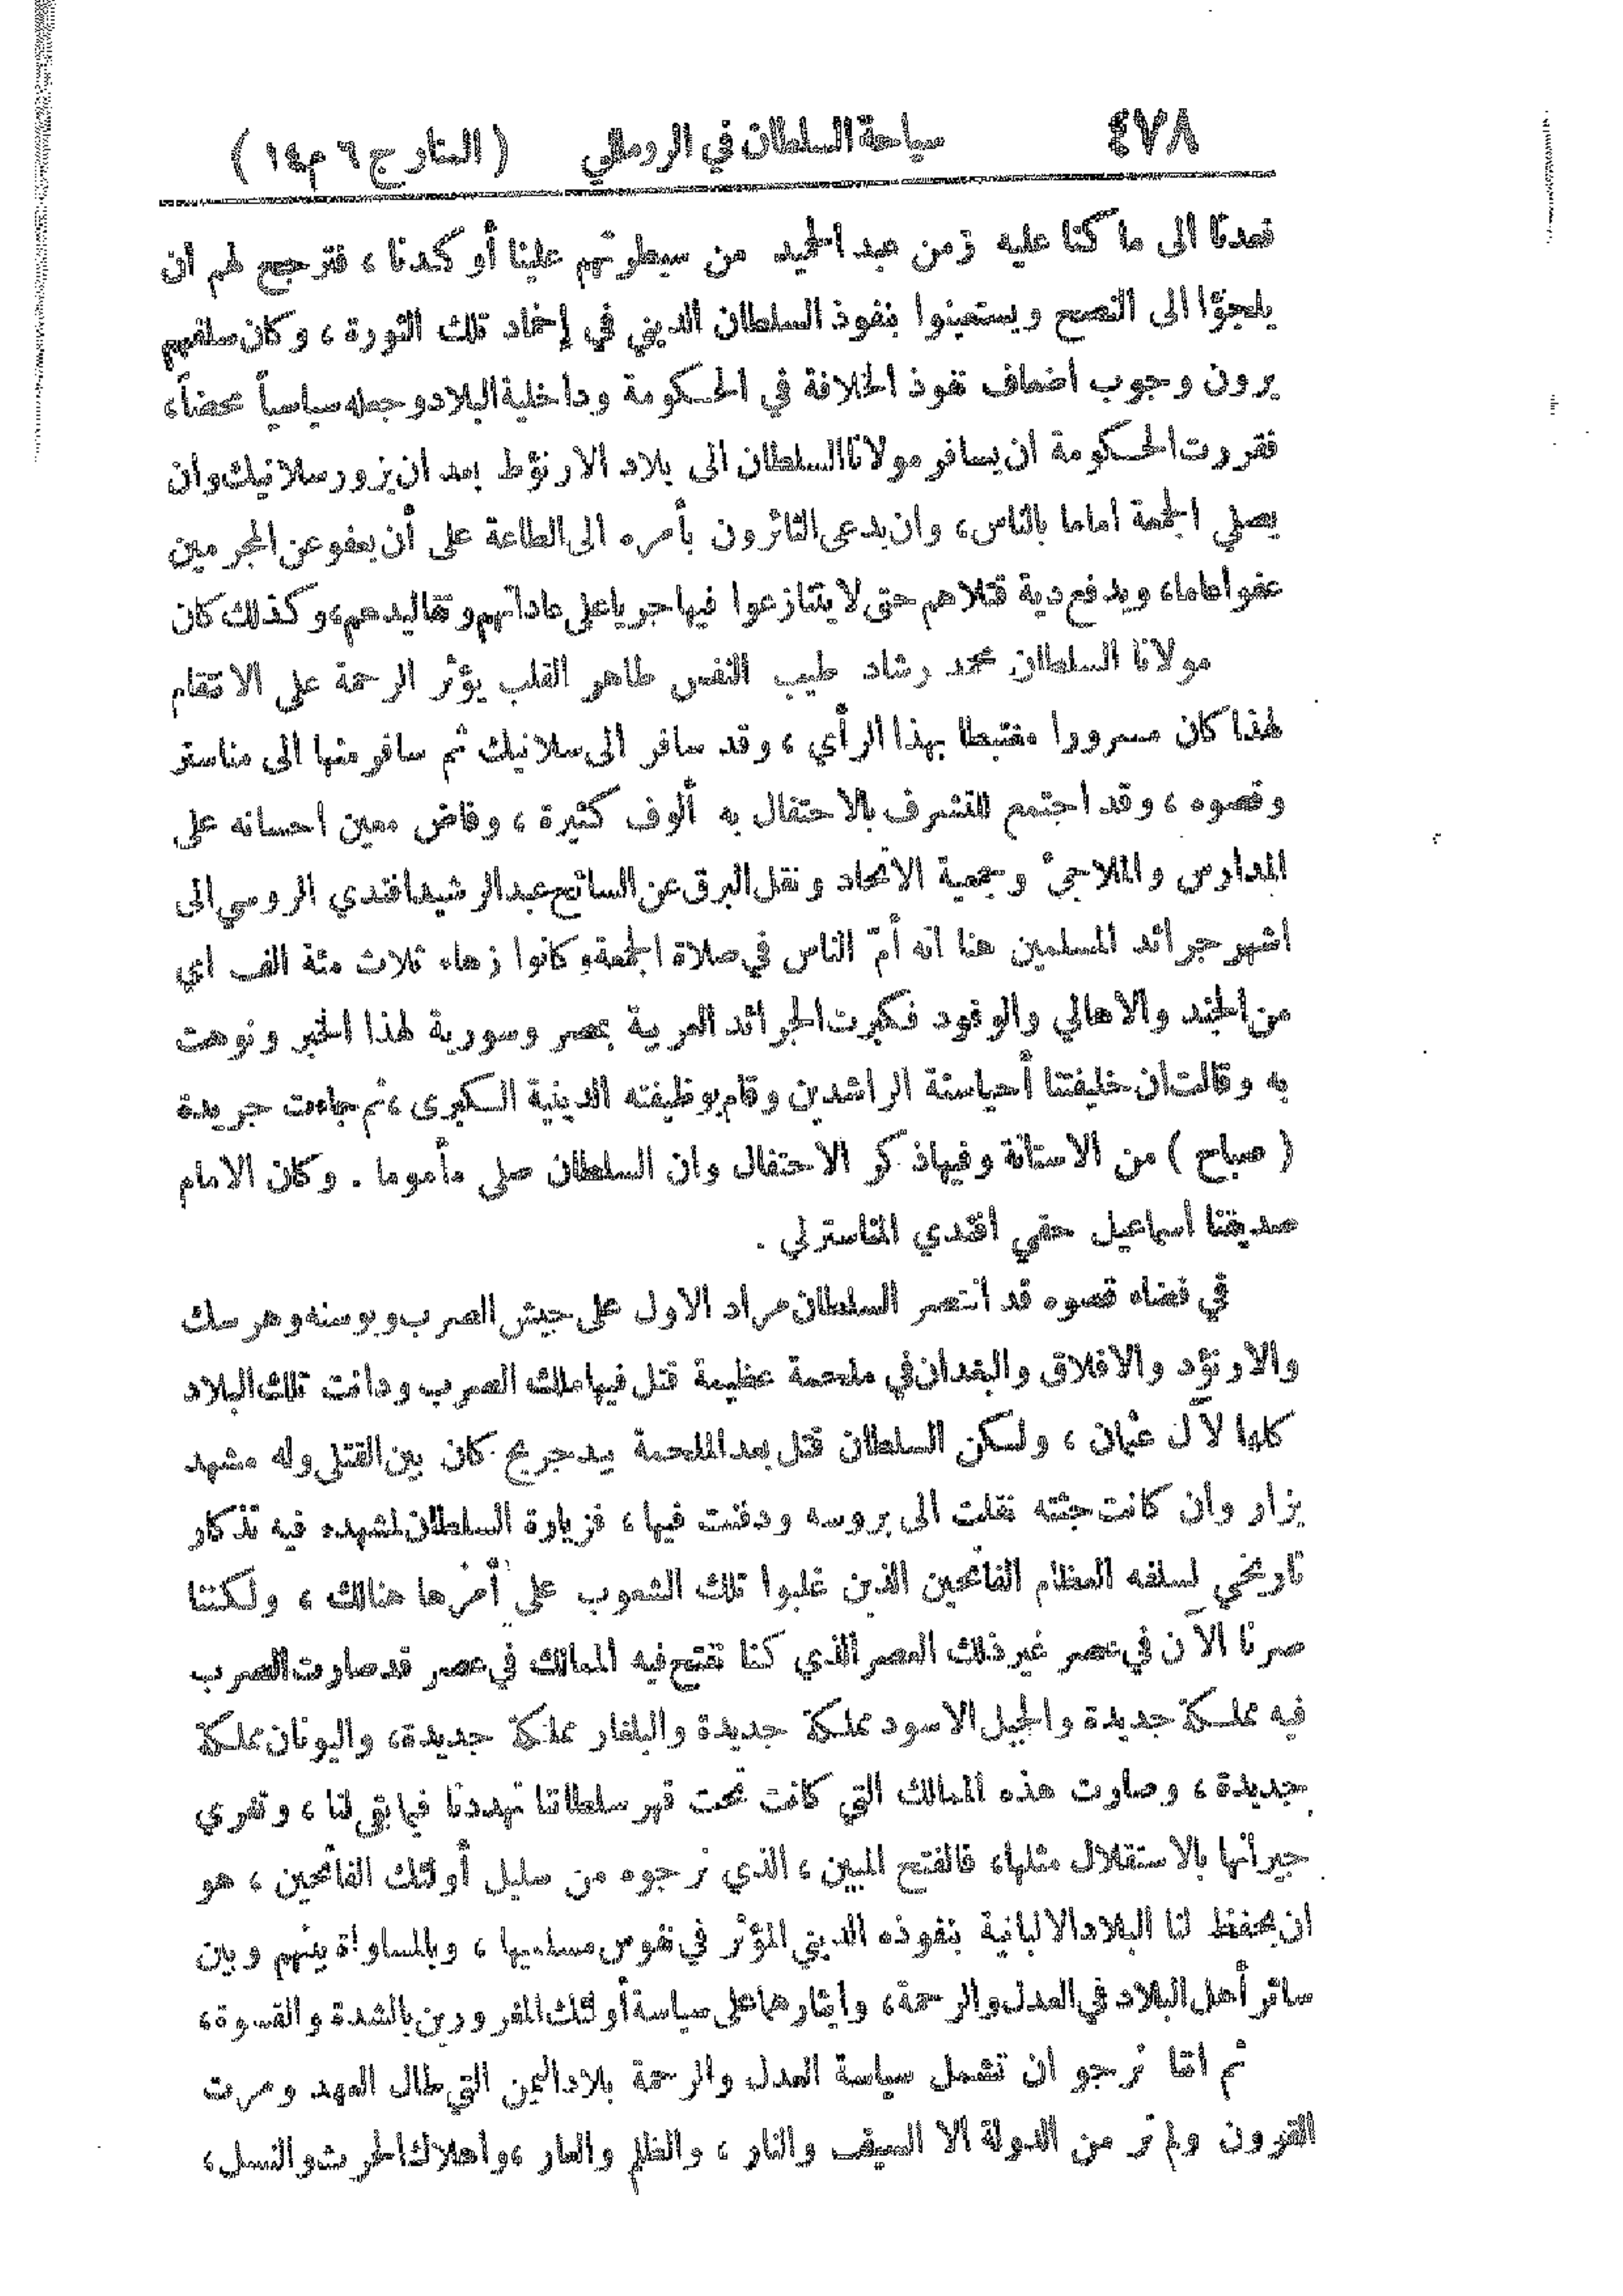 ٤٧٨ سياحة السلطان في الرومللي (المنار ج ٦ م ١٤)
فعدنا الى ما كنا عليه زمن عبد الحميد من سيطرتهم علينا أو كدنا ، فترجح لهم ان
يلجؤا الى النصح ويستعينوا بنفوذ السلطان الديني في إخماد تلك الثورة ، وكان سلفهم
يرون وجوب اضعاف نفوذ الخلافة في الحكومة وداخلية البلاد وجعله سياسياً محضاً ،
فقررت الحكومة ان يسافر مولانا السلطان الى بلاد الارنؤط بعد ان يزور سلانيك وان
يصلي الجمعة اماما بالناس ، وان يدعى الثائرون بأمره الى الطاعة على أن يعفو عن المجرمين
عفوا عاما ، ويدفع دية قتلاهم حتى لا يتنازعوا فيها جريا على عاداتهم وتقاليدهم ، وكذلك كان
مولانا السلطان محمد رشاد طيب النفس طاهر القلب يؤثر الرحمة على الانتقام
لهذا كان مسرورا مغتبطا بهذا الرأي ، وقد سافر الى سلانيك ثم سافر منها الى مناستر
وقصوه ، وقد اجتمع للتشرف بالاحتفال به ألوف كثيرة ، وفاض معين احسانه على
المدارس والملاجئ وجمعية الاتحاد ونقل البرق عن السائح عبد الرشيد افندي الروسي الى
اشهر جرائد المسلمين هنا انه أمّ الناس في صلاة الجمعة وكانوا زهاء ثلاث مئة الف اي
من الجند والاهالي والوفود فكبرت الجرائد العربية بمصر وسورية لهذا الخبر ونوهت
به وقالت ان خليفتنا أحيا سنة الراشدين وقام بوظيفته الدينية الكبرى ، ثم جاءت جريدة
( صباح ) من الاستانة وفيها ذكر الاحتفال وان السلطان صلى مأموما . وكان الامام
صديقنا اسماعيل حقي افندي المناسترلي .
في فضاء قصوه قد انتصر السلطان مراد الاول على جيش الصرب وبوسنه وهرسك
والارنؤد والافلاق والبغدان في ملحمة عظيمة قتل فيها ملك الصرب ودانت تلك البلاد
كلها لآل عثمان ، ولكن السلطان قتل بعد الملحمة بيد جريح كان بين القتلى وله مشهد
يزار وان كانت جثته نقلت الى بروسه ودفنت فيها ، فزيارة السلطان لمشهده فيه تذكار
تاريخي لسلفه العظام الفاتحين الذين غلبوا تلك الشعوب على أمرها هنالك ، ولكننا
صرنا الآن في عصر غير ذلك العصر الذي كنا نفتح فيه الممالك في عصر قد صارت الصرب
فيه مملكة جديدة والجبل الاسود مملكة جديدة والبلغار مملكة جديدة ، واليونان مملكة
جديدة ، وصارت هذه الممالك التي كانت تحت قهر سلطاننا تهددنا فيما بقي لنا ، وتغري
جيرانها بالاستقلال مثلها ، فالفتح المبين ، الذي نرجوه من سليل أولئك الفاتحين ، هو
ان يحفظ لنا البلاد الالبانية بنفوذه الديني المؤثر في نفوس مسلميها ، وبالمساواة بينهم وبين
سائر أهل البلاد في العدل والرحمة ، وايثارهما على سياسة أولئك المغرورين بالشدة والقسوة ،
ثم اننا نرجو ان تشمل سياسة العدل والرحمة بلاد اليمن التي طال العهد ومرت
القرون ولم تر من الدولة الا السيف والنار ، والظلم والعار ، واهلاك الحرث والنسل ،